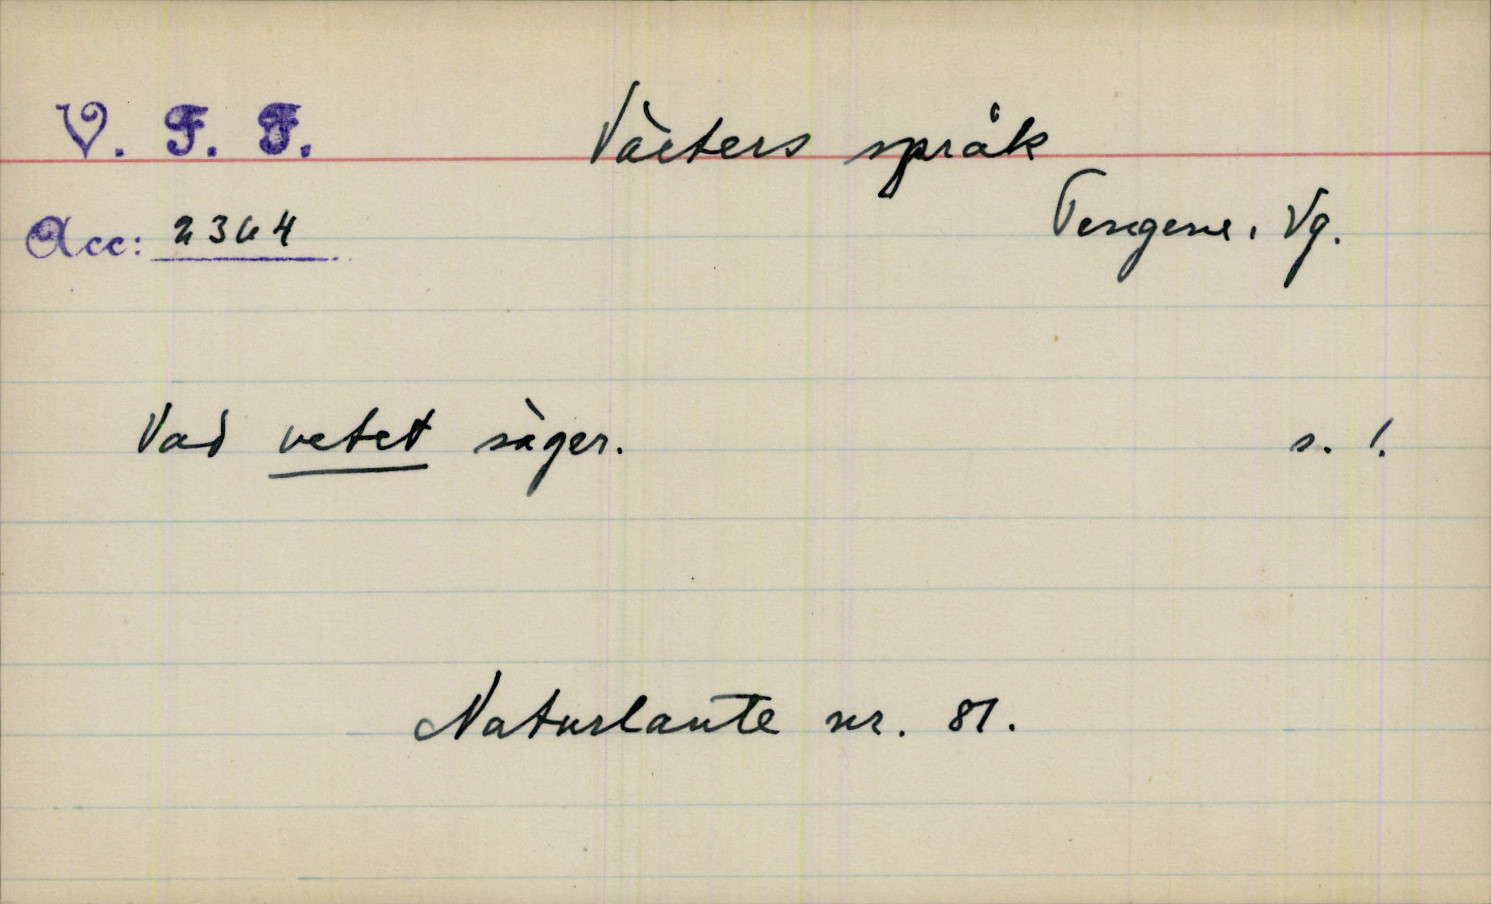 V. F. F. Växters språk
Acc: 2364 Tengene, Vg.
Vad vetet säger. s. 1.
Naturlaute nr. 81.